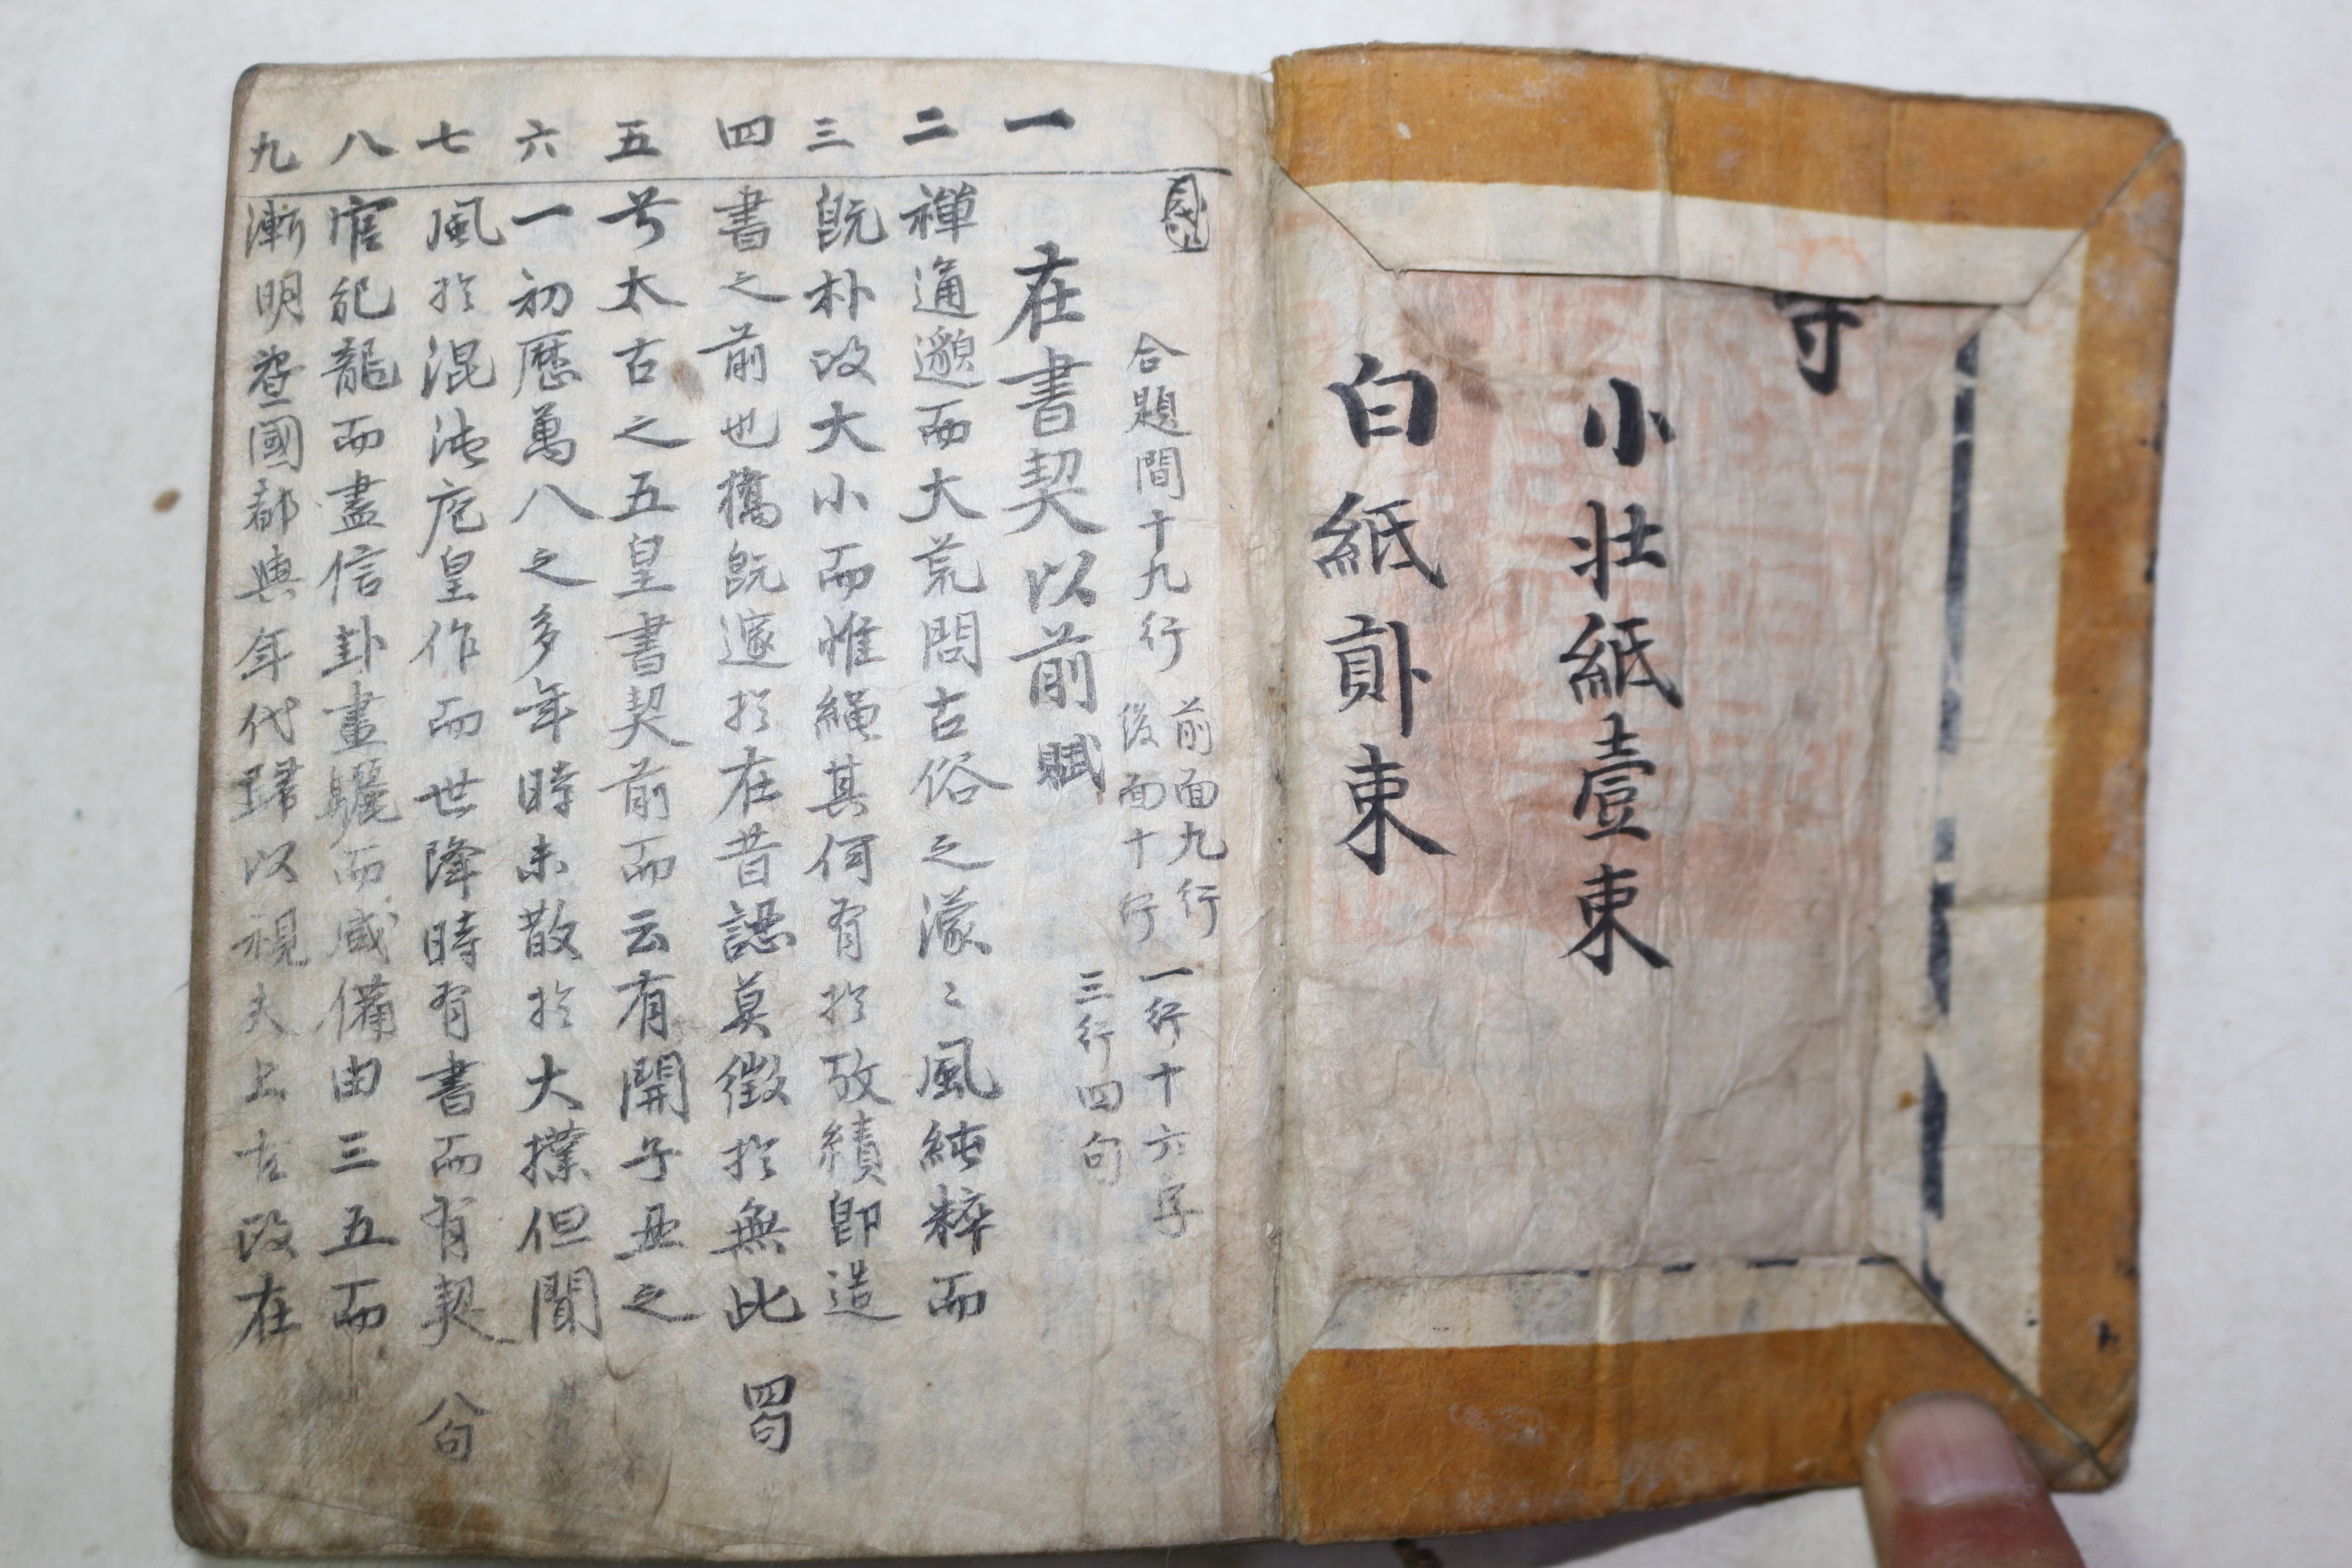 守
小壮紙壹束
白紙貳束
合題間十九行
前面九行
後面十行
一行十六字
三行四句
一
在書契以前賦
二
禪通邈而大荒問古俗之濛〻風純粹而
三
既朴改大小而惟繩其何有於攷績即造
四
書之前也攜既邃於在昔認莫徵於無此
四句
五
号太古之五皇書契前而云有開子丑之
六
一初歷萬八之多年時未散於大撲但聞
七
風於混沌庖皇作而世降時有書而有契
八句
八
官紀龍而盡信卦畫驪而咸備由三五而
九
漸明盤國都與年代歸以視夫上古政在